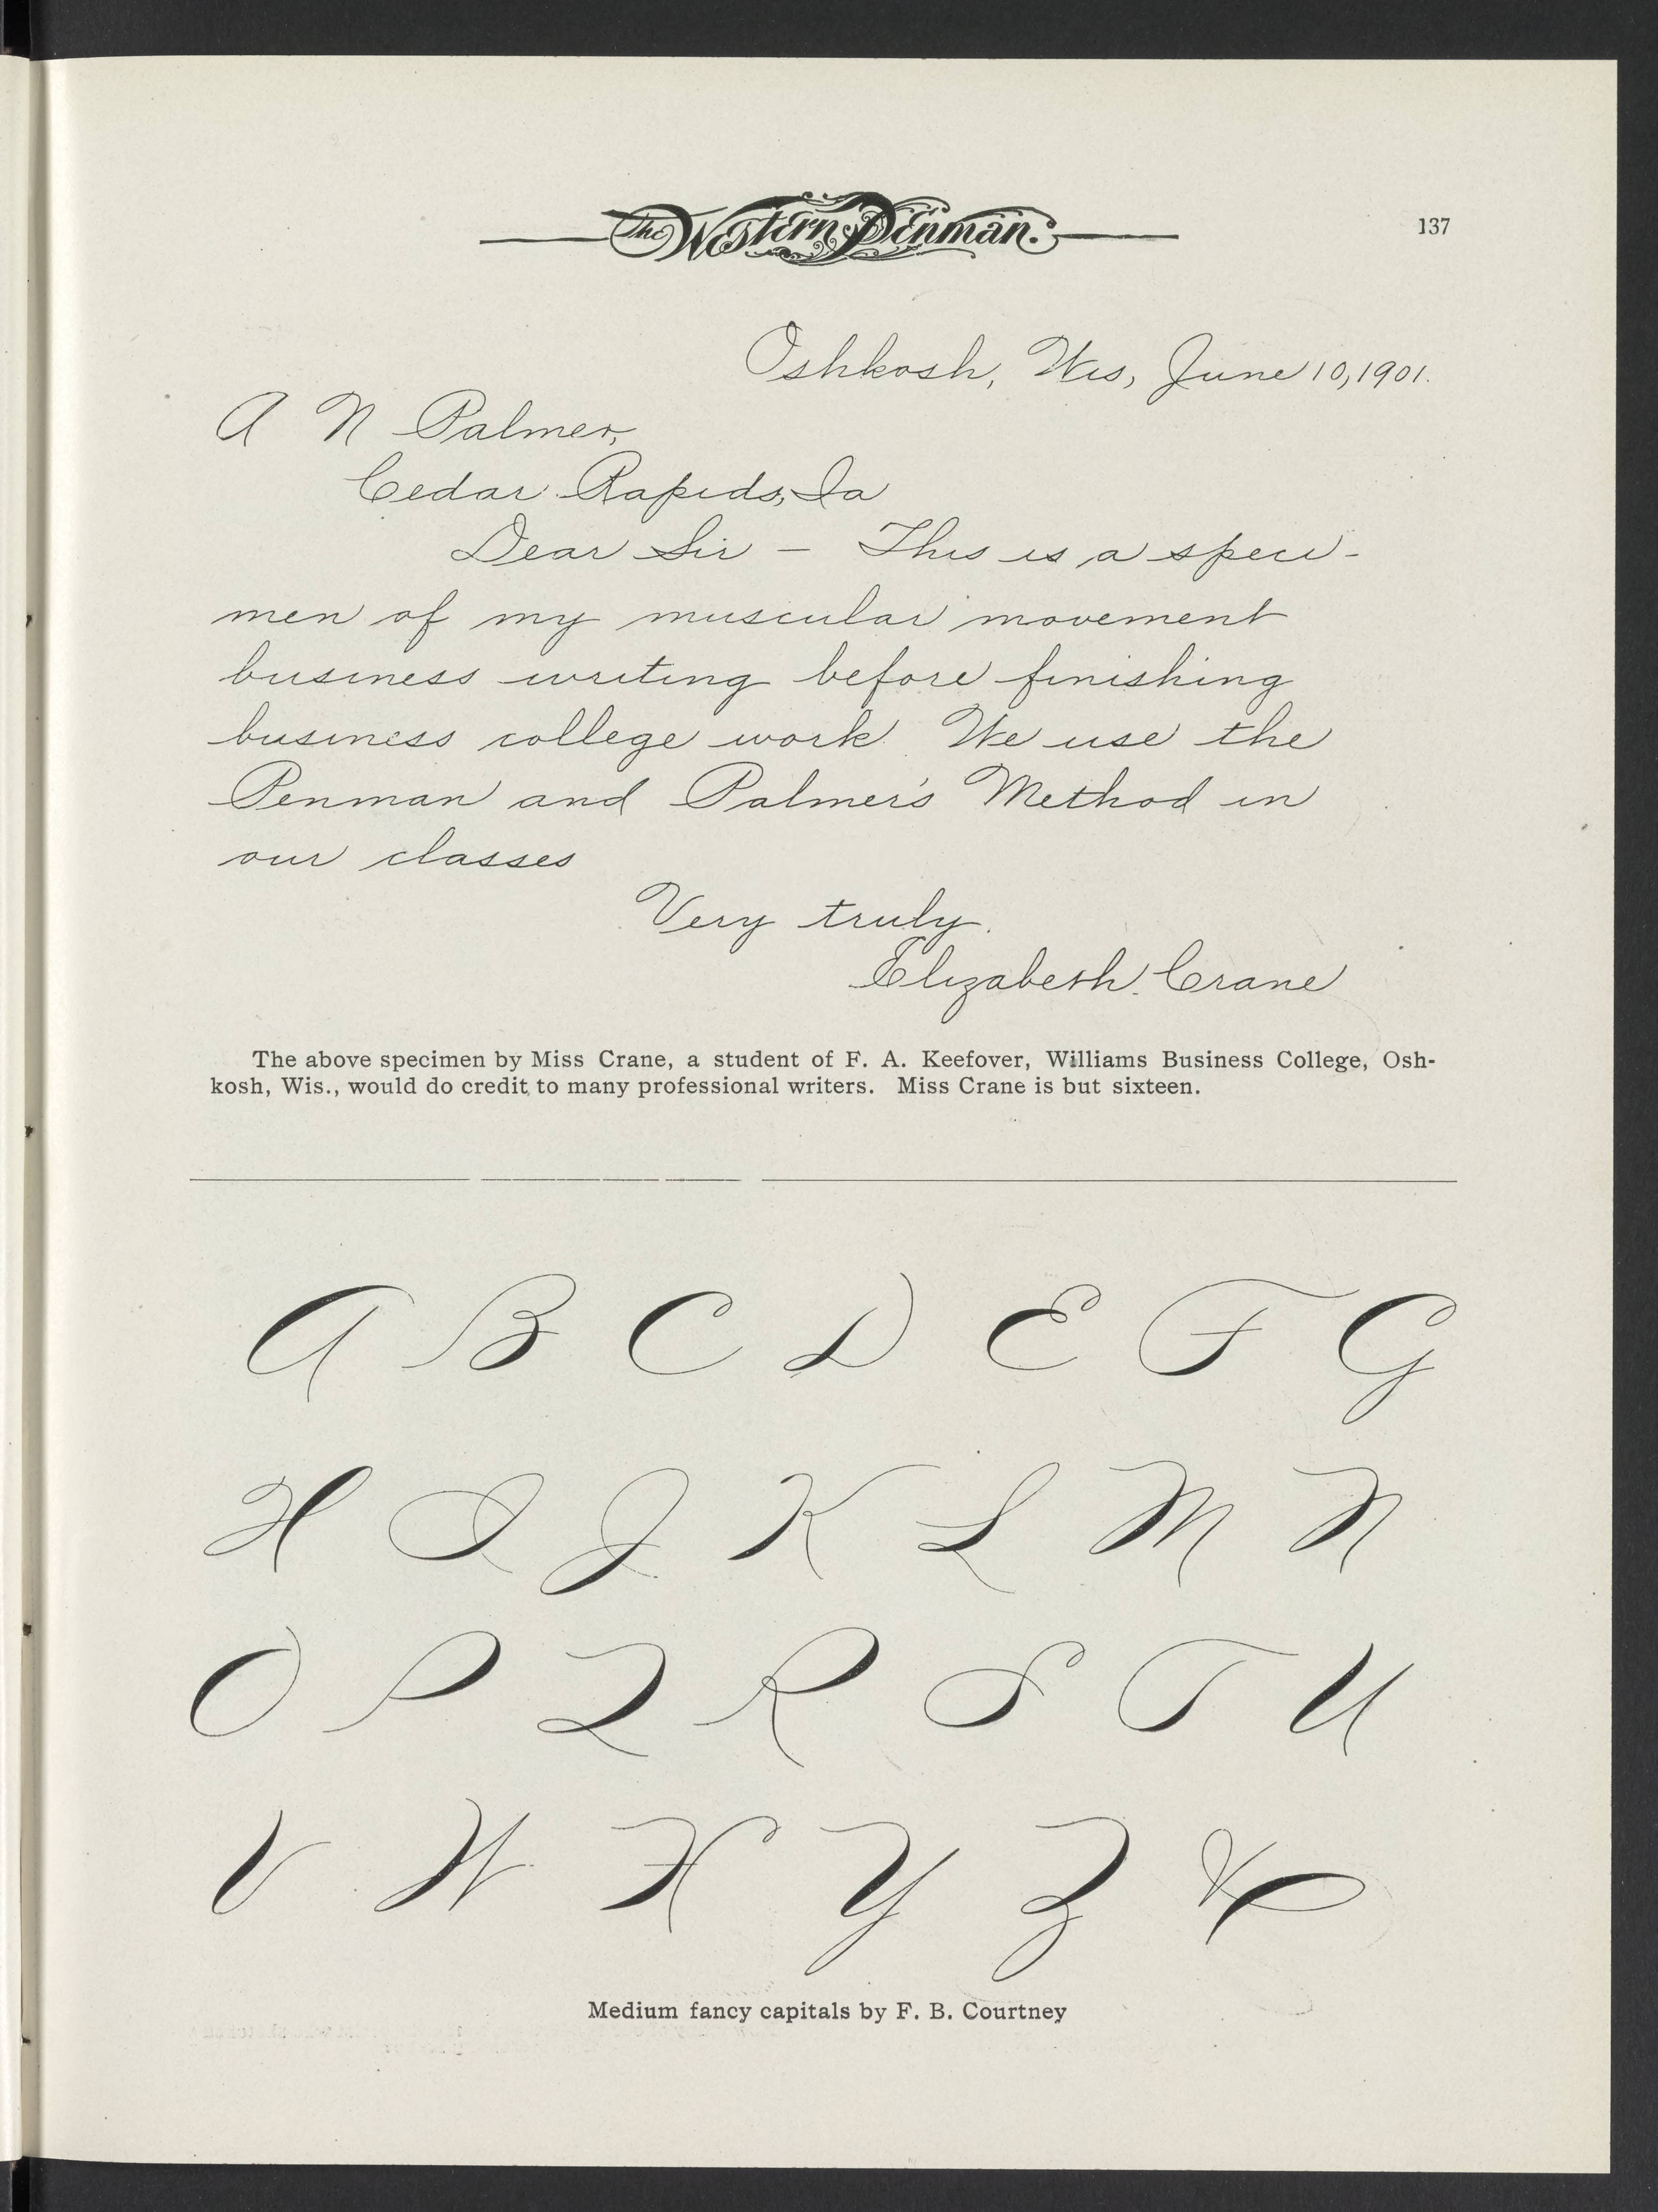 The Western Penman.
137
Oshkosh, Wis, June 10, 1901.
A N Palmer,
Cedar Rapids, Ia
Dear Sir – This is a speci-
men of my muscular movement
business writing before finishing
business college work. We use the
Penman and Palmer's Method in
our classes
Very truly.
Elizabeth Crane
The above specimen by Miss Crane, a student of F. A. Keefover, Williams Business College, Osh-
kosh, Wis., would do credit to many professional writers. Miss Crane is but sixteen.
A B C D E F G
H I J K L M N
O P Q R S T U
V W X Y Z &
Medium fancy capitals by F. B. Courtney